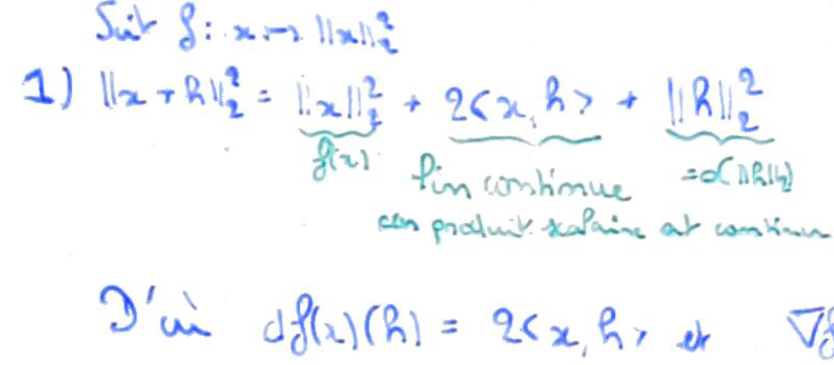 Soit f : x ↦ ||x||₂²
1) ||x + h||₂² = ||x||₂² + 2<x, h> + ||h||₂²
f(x) lin continue = o(||h||₂)
car produit scalaire est continu
D'où df(x)(h) = 2<x, h> et ∇f